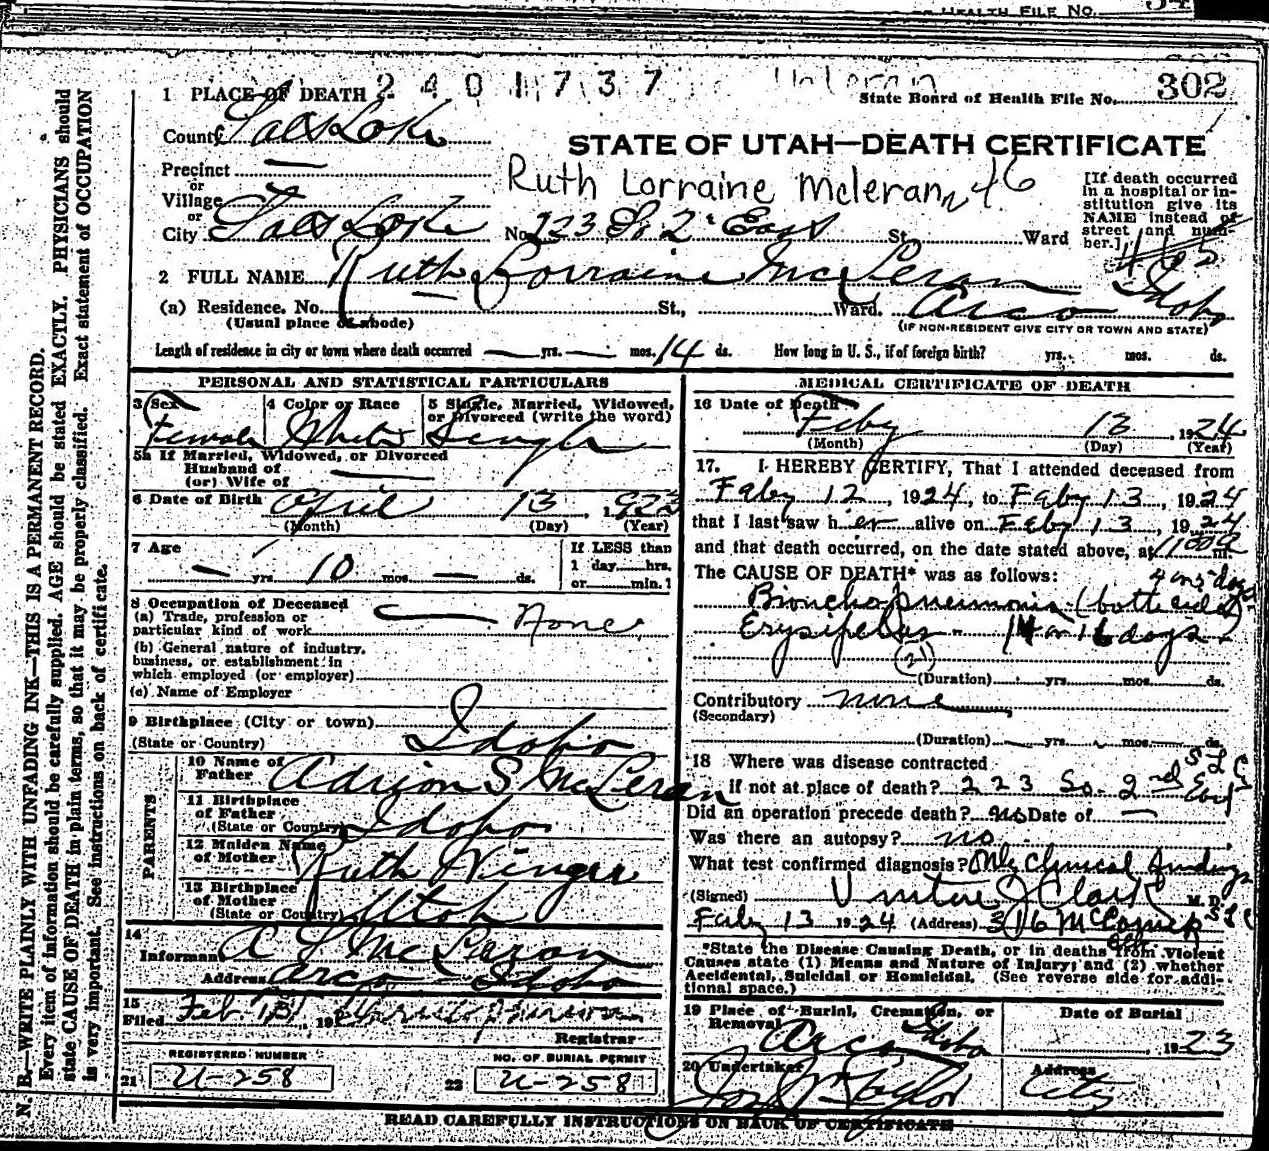 OF HEALTH FILE NO.
1 PLACE OF DEATH 2401737
State Board of Health File No. 302
County Salt Lake
STATE OF UTAH—DEATH CERTIFICATE
Precinct —
Ruth Lorraine McLeran
or
Village
or
City Salt Lake No. 223 So. 2 East St. Ward
[If death occurred
in a hospital or in-
stitution give its
NAME instead of
street and num-
ber.]
2 FULL NAME Ruth Lorraine McLeran
(a) Residence. No. — St., Ward. Arco Idaho
(Usual place of abode)
(IF NON-RESIDENT GIVE CITY OR TOWN AND STATE)
Length of residence in city or town where death occurred — yrs. — mos. 14 ds. How long in U. S., if of foreign birth? yrs. mos. ds.
PERSONAL AND STATISTICAL PARTICULARS
3 Sex Female
4 Color or Race White
5 Single, Married, Widowed,
or Divorced (write the word)
Single
5a If Married, Widowed, or Divorced
Husband of
(or) Wife of —
6 Date of Birth April 13, 1923
(Month) (Day) (Year)
7 Age
— yrs. 10 mos. — ds.
If LESS than
1 day hrs.
or min.
8 Occupation of Deceased
(a) Trade, profession or
particular kind of work — None
(b) General nature of industry,
business, or establishment in
which employed (or employer)
(c) Name of Employer
9 Birthplace (City or town)
(State or Country) Idaho
PARENTS
10 Name of
Father Adrion S McLeran
11 Birthplace
of Father
(State or Country) Idaho
12 Maiden Name
of Mother Ruth Winger
13 Birthplace
of Mother
(State or Country) Utah
14
Informant A S McLeran
Address Arco Idaho
15
Filed Feb. 13, 19
Registrar
REGISTERED NUMBER
21 U-258
NO. OF BURIAL PERMIT
22 U-258
MEDICAL CERTIFICATE OF DEATH
16 Date of Death
Feby 13, 1924
(Month) (Day) (Year)
17. I HEREBY CERTIFY, That I attended deceased from
Feby 12, 1924, to Feby 13, 1924
that I last saw her alive on Feby 13, 1924
and that death occurred, on the date stated above, at m.
The CAUSE OF DEATH* was as follows:
4 or 5 days
Broncho pneumonia (both sides)
Erysipelas - 14 or 16 days
(21)
(Duration) yrs. mos. ds.
Contributory none
(Secondary)
(Duration) yrs. mos. ds.
18 Where was disease contracted
If not at place of death? 223 So. 2nd East S L C
Did an operation precede death? no Date of —
Was there an autopsy? no
What test confirmed diagnosis? Only Clinical findings
(Signed) Clark M. D.
Feby 13 1924 (Address) 316 McCornick SLC
*State the Disease Causing Death, or in deaths from Violent
Causes state (1) Means and Nature of Injury; and (2) whether
Accidental, Suicidal or Homicidal. (See reverse side for addi-
tional space.)
19 Place of Burial, Cremation, or
Removal
Arco Idaho
Date of Burial
1923
20 Undertaker
Jos. Wm Taylor
Address
City
READ CAREFULLY INSTRUCTIONS ON BACK OF CERTIFICATE
N. B.—WRITE PLAINLY WITH UNFADING INK—THIS IS A PERMANENT RECORD.
Every item of information should be carefully supplied. AGE should be stated EXACTLY. PHYSICIANS should
state CAUSE OF DEATH in plain terms, so that it may be properly classified. Exact statement of OCCUPATION
is very important. See instructions on back of certificate.